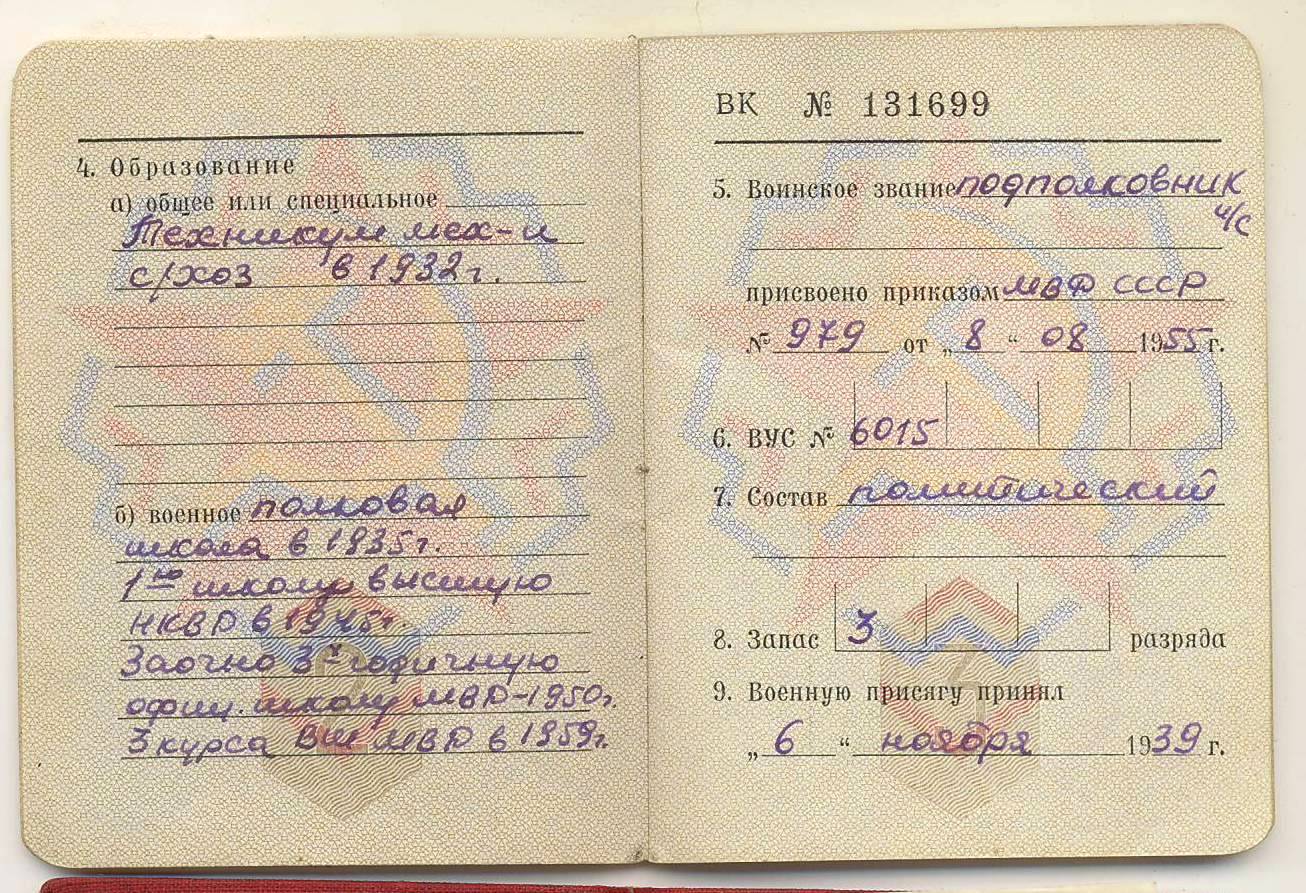 4. Образование
а) общее или специальное
Техникум мех-и
с/хоз в 1932 г.
б) военное полковая
школа в 1935 г.
1ую школу высшую
НКВД в 1945 г.
Заочно 3х годичную
офиц. школу МВД-1950 г.
3 курса ВШ МВД в 1959 г.
ВК № 131699
5. Воинское звание подполковник
и/с
присвоено приказом МВД СССР
№ 979 от „8“ 08 1955 г.
6. ВУС № 6015
7. Состав политический
8. Запас 3 разряда
9. Военную присягу принял
„6“ ноября 1939 г.